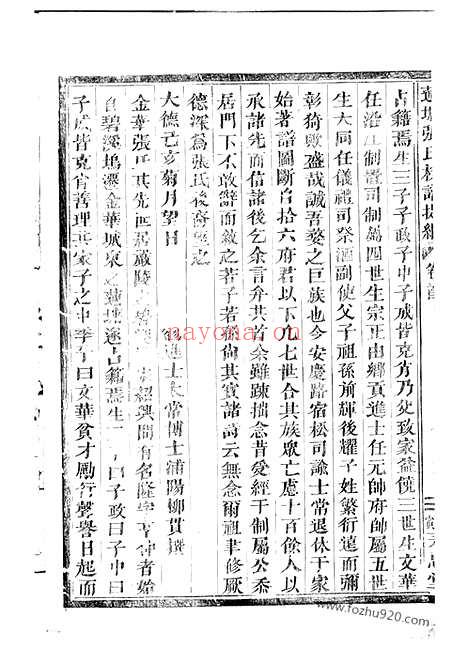 蓮塘張氏
卷首
占籍焉生三子子政子中子成皆克肖乃父致家益饒三世生文華
任浙江制置司制屬四世生宗正由鄉貢進士任元帥府帥屬五世
生大同任儀禮司祭酒副使父子祖孫前輝後耀子姓繁衍遠而彌
彰猗歟盛哉誠吾婺之巨族也今安慶路宿松司諭士常退休于家
始著譜圖斷自十六府君以下凡七世合其族眾亡慮十百餘人以
承諸先而信諸後乞余言弁其首余雖踈拙念昔愛經于制屬公忝
居門下不敢辭而敘之若子若孫尚其寶諸詩云無念爾祖聿修厥
德深為張氏後裔望之
大德己亥菊月望日
進士太常博士浦陽柳貫撰
金華張氏其先世居嚴陵
紹興間有名隆字
仲者始
自碧溪塢遷金華城東之蓮塘遂占籍焉生
曰子政曰子中曰
子成皆克肖善理其家子之中季
曰文華負才勵行聲譽日起而
nayona.cn
www.fozhu920.com